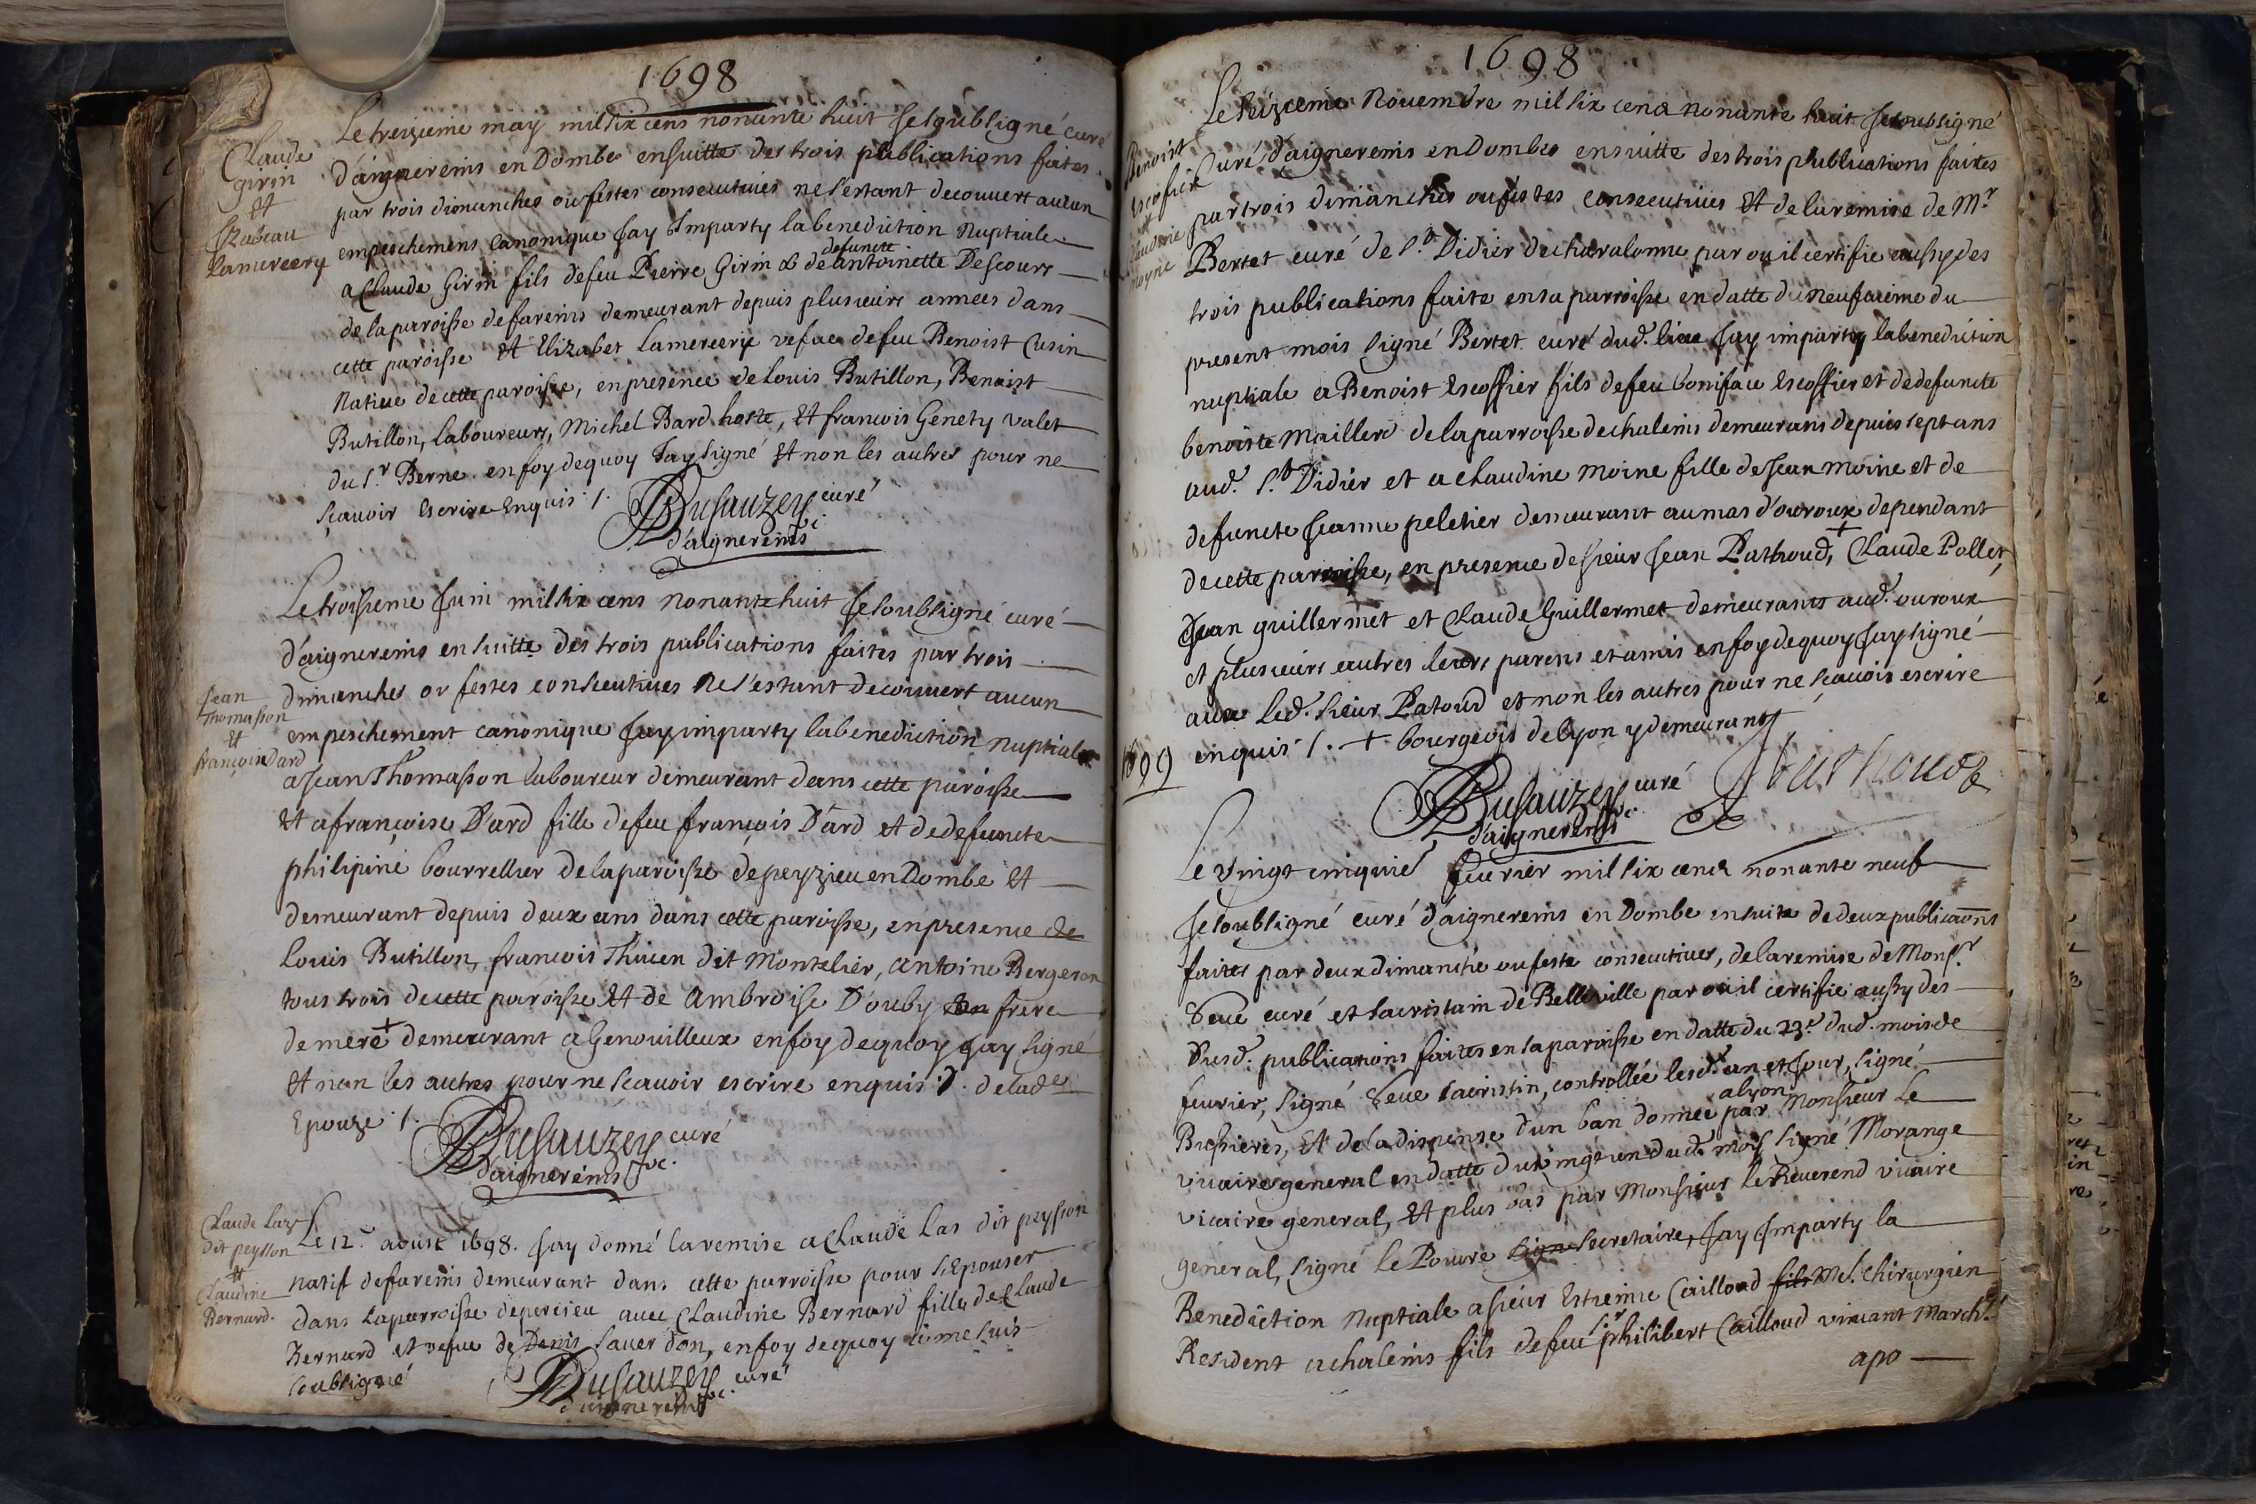 1698
Claude
girin
et
Izabeau
Lamercery
Le treizieme may mil six cens nonante huit Je soubsigné curé
d'aignereins en Dombe ensuitte des trois publications faites
par trois dimanches ou festes consecutives ne s'estant decouvert aucun
empeschemens canonique Jay Imparty la benediction Nuptiale
defuncte
a Claude Girin fils de feu Pierre Girin & de antoinette Descours
de la paroisse de fareins demeurant depuis plusieurs années dans
cette paroisse et Elizabet Lamercery vefue de feu Benoist Cusin
Natiue de cette paroisse, en presence de Louis Butillon, Benoist
Butillon, laboureurs, Michel Bard hoste, et francois Genety valet
du Sr. Berne. en foy dequoy Jay signé et non les autres pour ne
sçauoir Escrire Enquis ./.
Busauzey curé
d'aignereins
Jean
Thomasson
et
françoise Dard
Le troisieme Juin mil six cens nonante huit Je soubsigné curé
d'aignereins ensuitte des trois publications faites par trois
dimanches ou festes consecutiues Ne s'estant decouuert aucun
empeschement canonique Jay imparty la benediction nuptiale
a Jean Thomasson laboureur demeurant dans cette paroisse
et a françoise Dard fille de feu françois Dard et de defuncte
philipine bourrellier de la paroisse de peyzieu en Dombe et
demeurant depuis deux ans dans cette paroisse, en presence de
Louis Butillon, francois Thiuen dit Montelier, antoine Bergeron
tous trois de cette paroisse et de Ambroise Douby son frere
de mere + demeurant a Genouilleux en foy dequoy Jay signé
et non les autres pour ne scauoir escrire enquis ./. de lade
Epouze ./.
Busauzey curé
d'aignereins
Claude Las
dit peysson
et
Claudine
Bernard.
Le 12e. aoust 1698. Jay donné la remise a Claude Las dit peysson
natif de fareins demeurant dans cette parroisse pour s'Epouser
dans la parroisse de percieu auec Claudine Bernard fille de Claude
Bernard et vefue de Denis Sauerdon, en foy dequoy ie me suis
soubsigné
Busauzey curé
d'aignereins
1698
Benoist
Escofier
et
Claudine
moyne
Le seizieme Nouembre mil six cens nonante huit Je soubsigné
Curé d'aignereins en Dombes ensuitte des trois publications faites
par trois dimanches ou festes consecutiues et de la remise de Mr
Bertet curé de St. Didier de chavalonne par ou il certifie aussy des
trois publications faite en sa parroisse en datte du neufuieme du
present mois signé Bertet curé dud. lieu Jay imparty la benediction
nuptiale a Benoist Escoffier fils de feu boniface Escoffier et de defuncte
benoiste Maillerd de la parroisse de chaleins demeurans depuis sept ans
aud. St. Didier et a claudine moine fille de Jean moine et de
defuncte Jeanne peletier demeurant au mas d'ouroux dependant
de cette parroisse, en presence de sieur Jean Pathoud, + Claude Pollet,
Jean guillermet et Claude Guillermet demeurants aud. ouroux
et plusieurs autres leurs parens et amis en foy dequoy Jay signé
auec led. sieur Patoud et non les autres pour ne scauoir escrire
enquis ./. + bourgeois de lyon y demeurant
Busauzey curé
d'aignereins
Pathoud
1699
Le Vingt cinquie fevrier mil six cens nonante neuf
Je soubsigné curé d'aignereins en Dombe ensuite de deux publicaons
faites par deux dimanche ou feste consecutiues, de la remise de Monsr.
Seue curé et sacristain de Belleville par ou il certifie aussy des
susd. publications faites en sa paroisse en datte du 23e. dud. mois de
feurier, signé Seue sacristin, controllée lesd. an et Jour, signé
alyon
Bussieres, et de la dispense d'un ban donnée par Monsieur Le
vicaire general en datte du vingt un dud. mois signé Morange
vicaire general, et plus bas par Monsieur le Reuerend vicaire
général, signé le Pouure signe secretaire, Jay Imparty la
Benediction Nuptiale a sieur Estienne Cailloud fils Me. chirurgien
sr
Resident a chaleins fils de feu philibert Cailloud viuant March.
apo